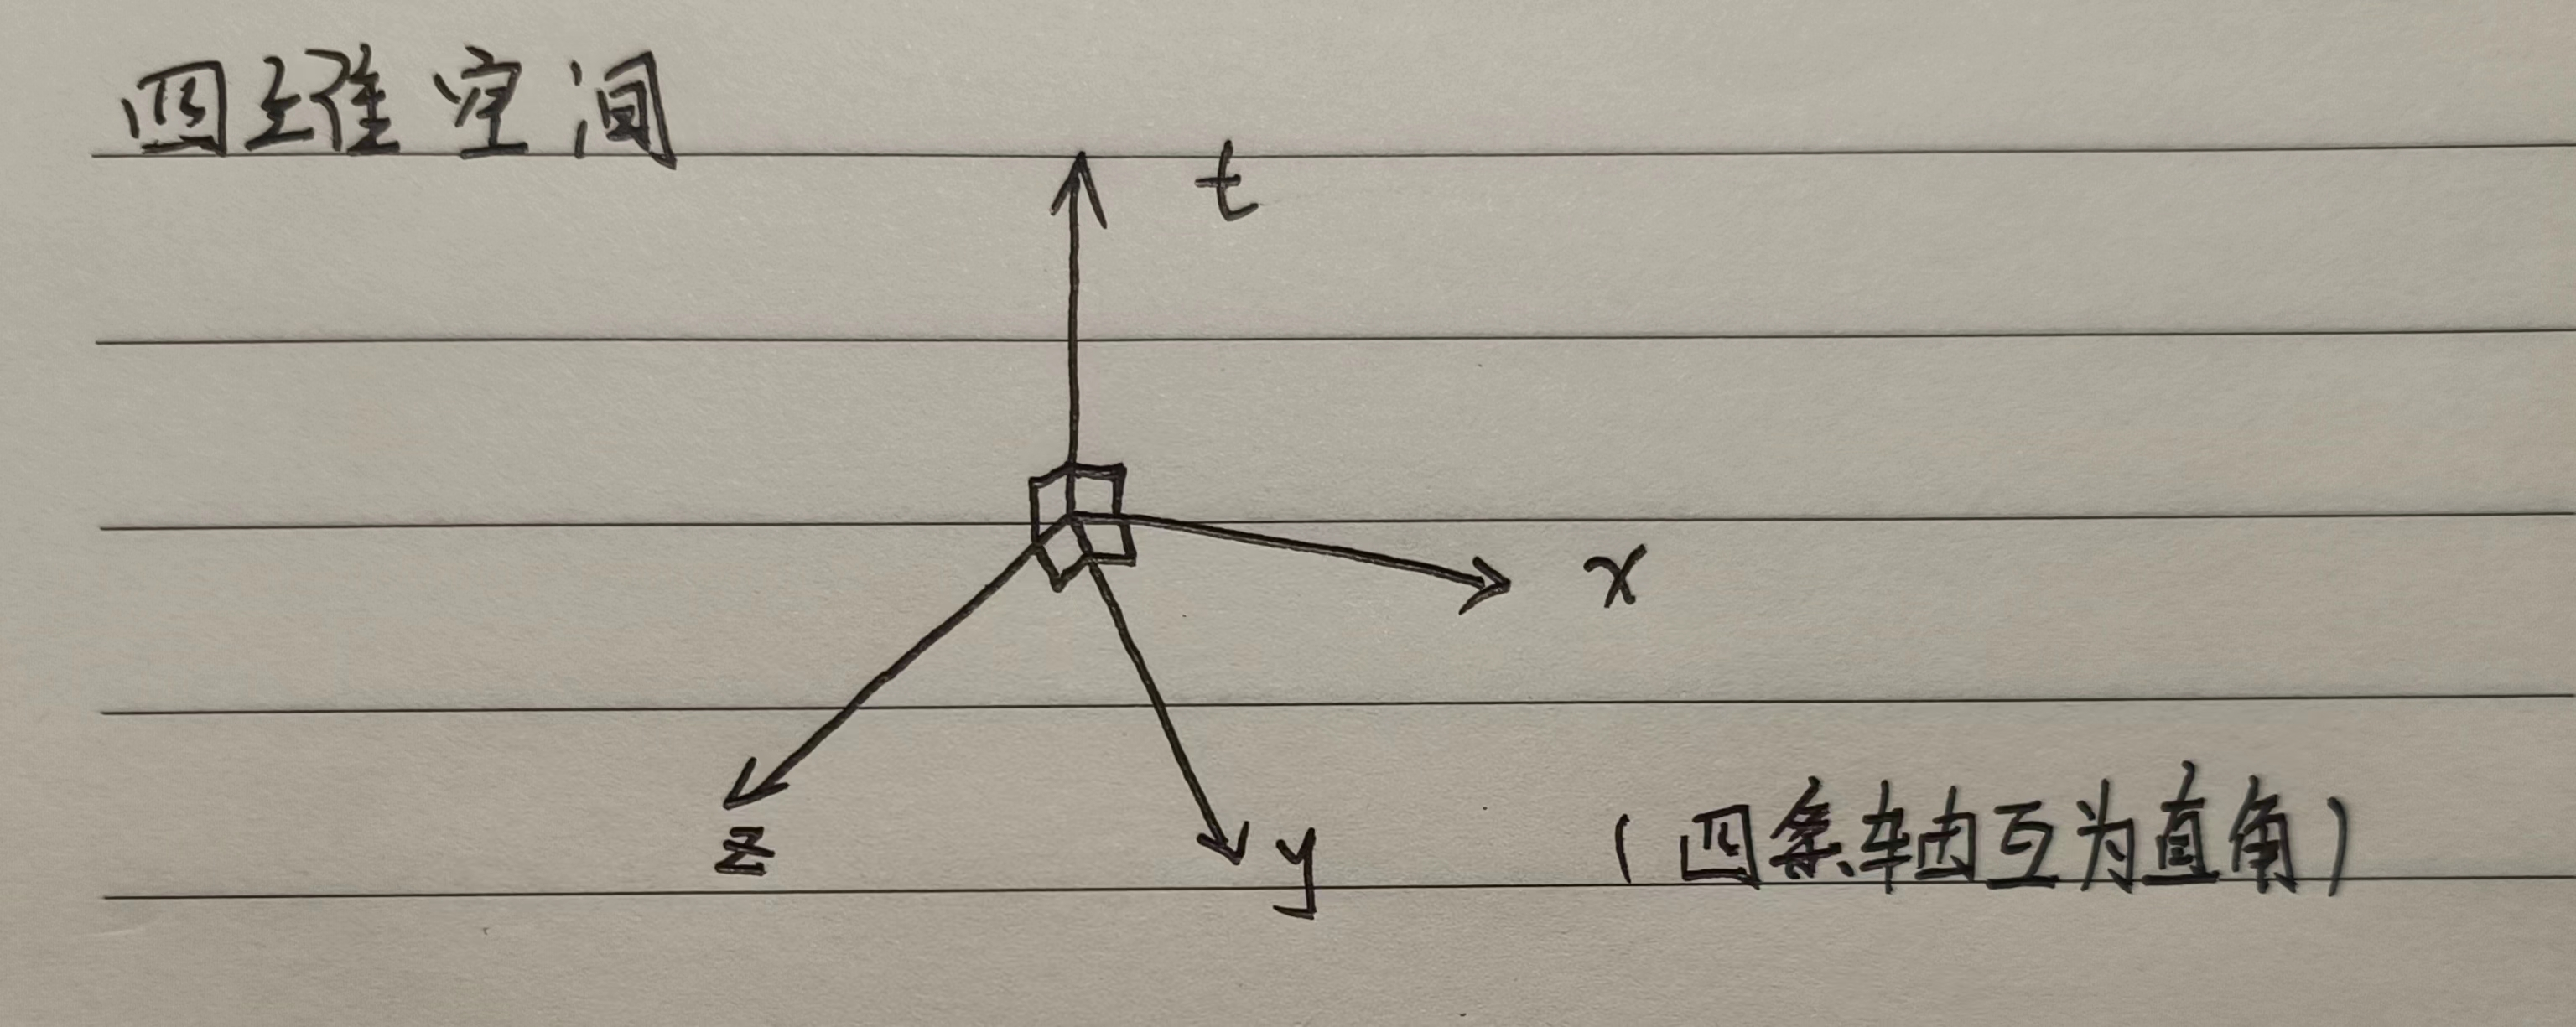 四维空间
t
x
z
y
(四条轴互为直角)